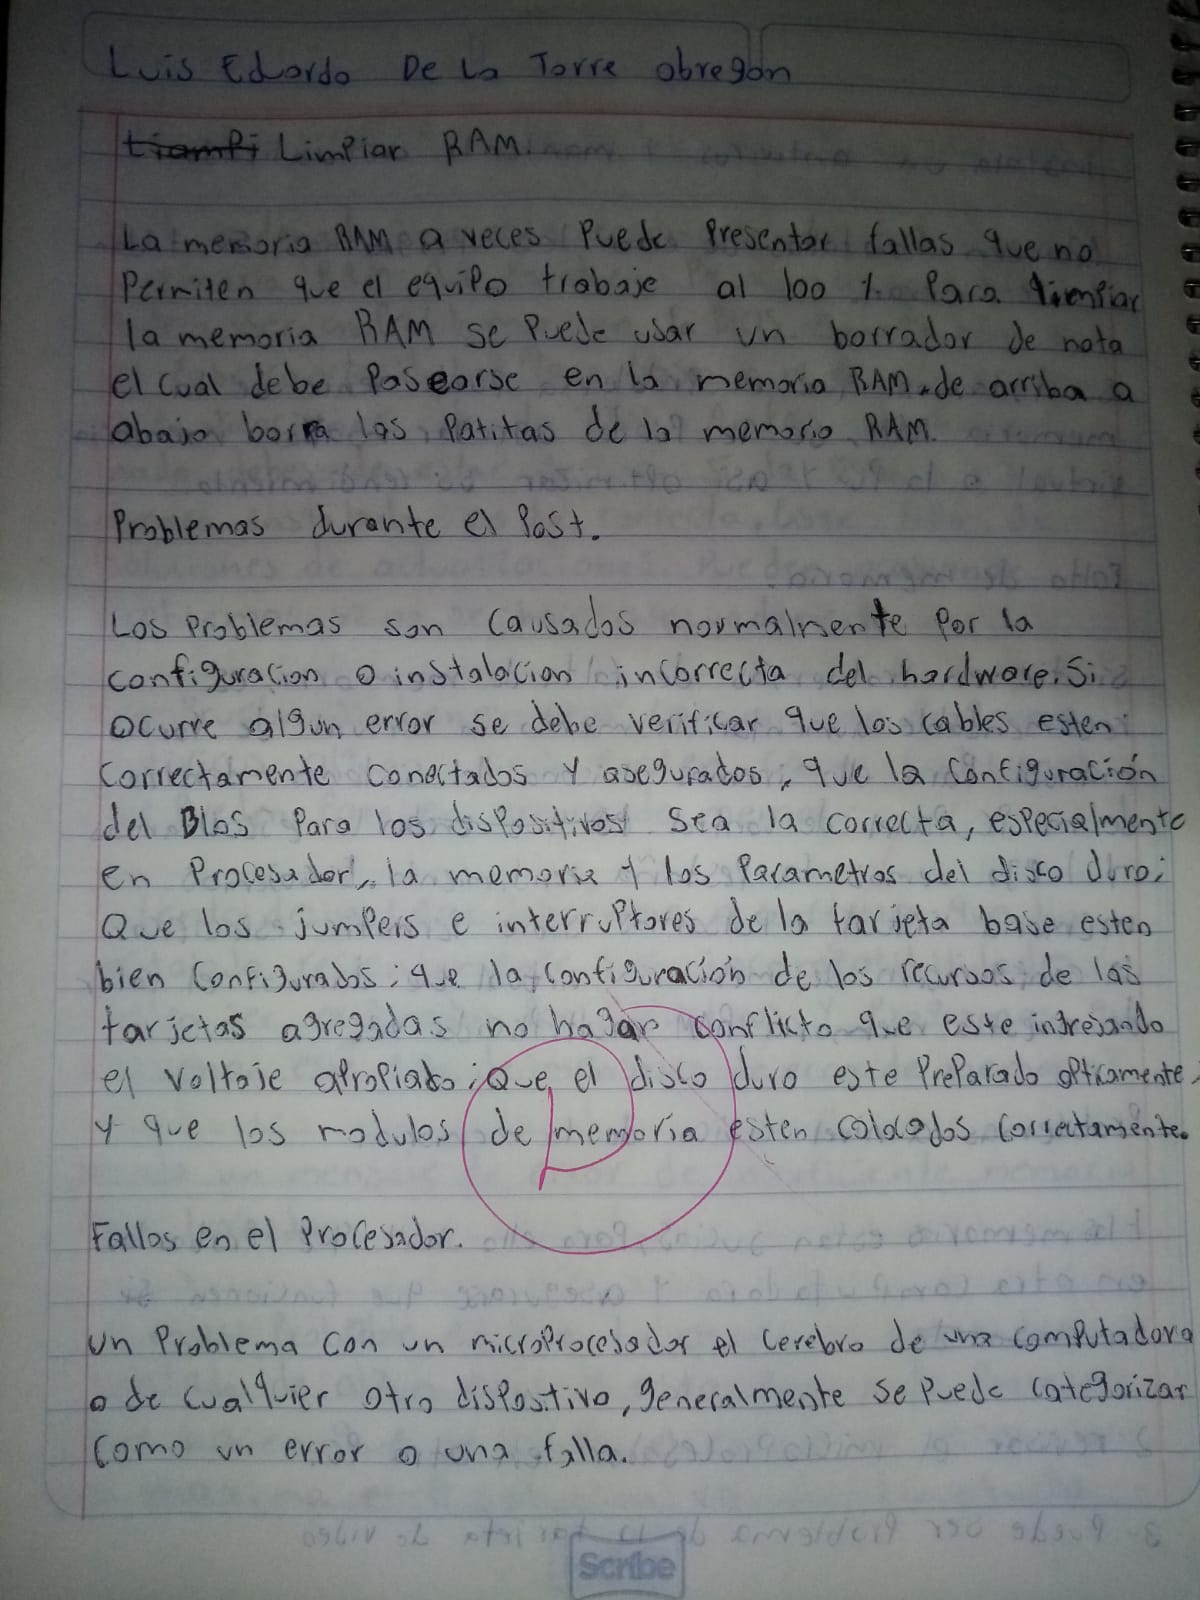 Luis Edordo De La Torre obregón
Limpiar RAM
La memoria RAM a veces Puede Presentar fallas que no
Permiten que el equipo trabaje al 100 % Para limpiar
la memoria RAM se Puede usar un borrador de nata
el cual debe Pasearse en la memoria RAM de arriba a
abajo borra las Patitas de la memoria RAM.
Problemas durante el Post.
Los Problemas son causados normalmente Por la
configuracion o instalacion incorrecta del hardware. Si
ocurre algun error se debe verificar que los cables esten
correctamente conectados y asegurados, que la configuración
del Bios Para los dispositivos sea la correcta, especialmente
en Procesador, la memoria y los Parametros del disco duro;
Que los jumpers e interruptores de la tarjeta base esten
bien configurados; que la configuración de los recursos de las
tarjetas agregadas no hagar conflicto que este ingresando
el voltaje apropiado; que el disco duro este Preparado opticamente,
y que los modulos de memoria esten colocados correctamente.
Fallos en el Procesador.
un Problema con un microprocesador el cerebro de una computadora
o de cualquier otro dispositivo, generalmente se Puede categorizar
como un error o una falla.
Scribe